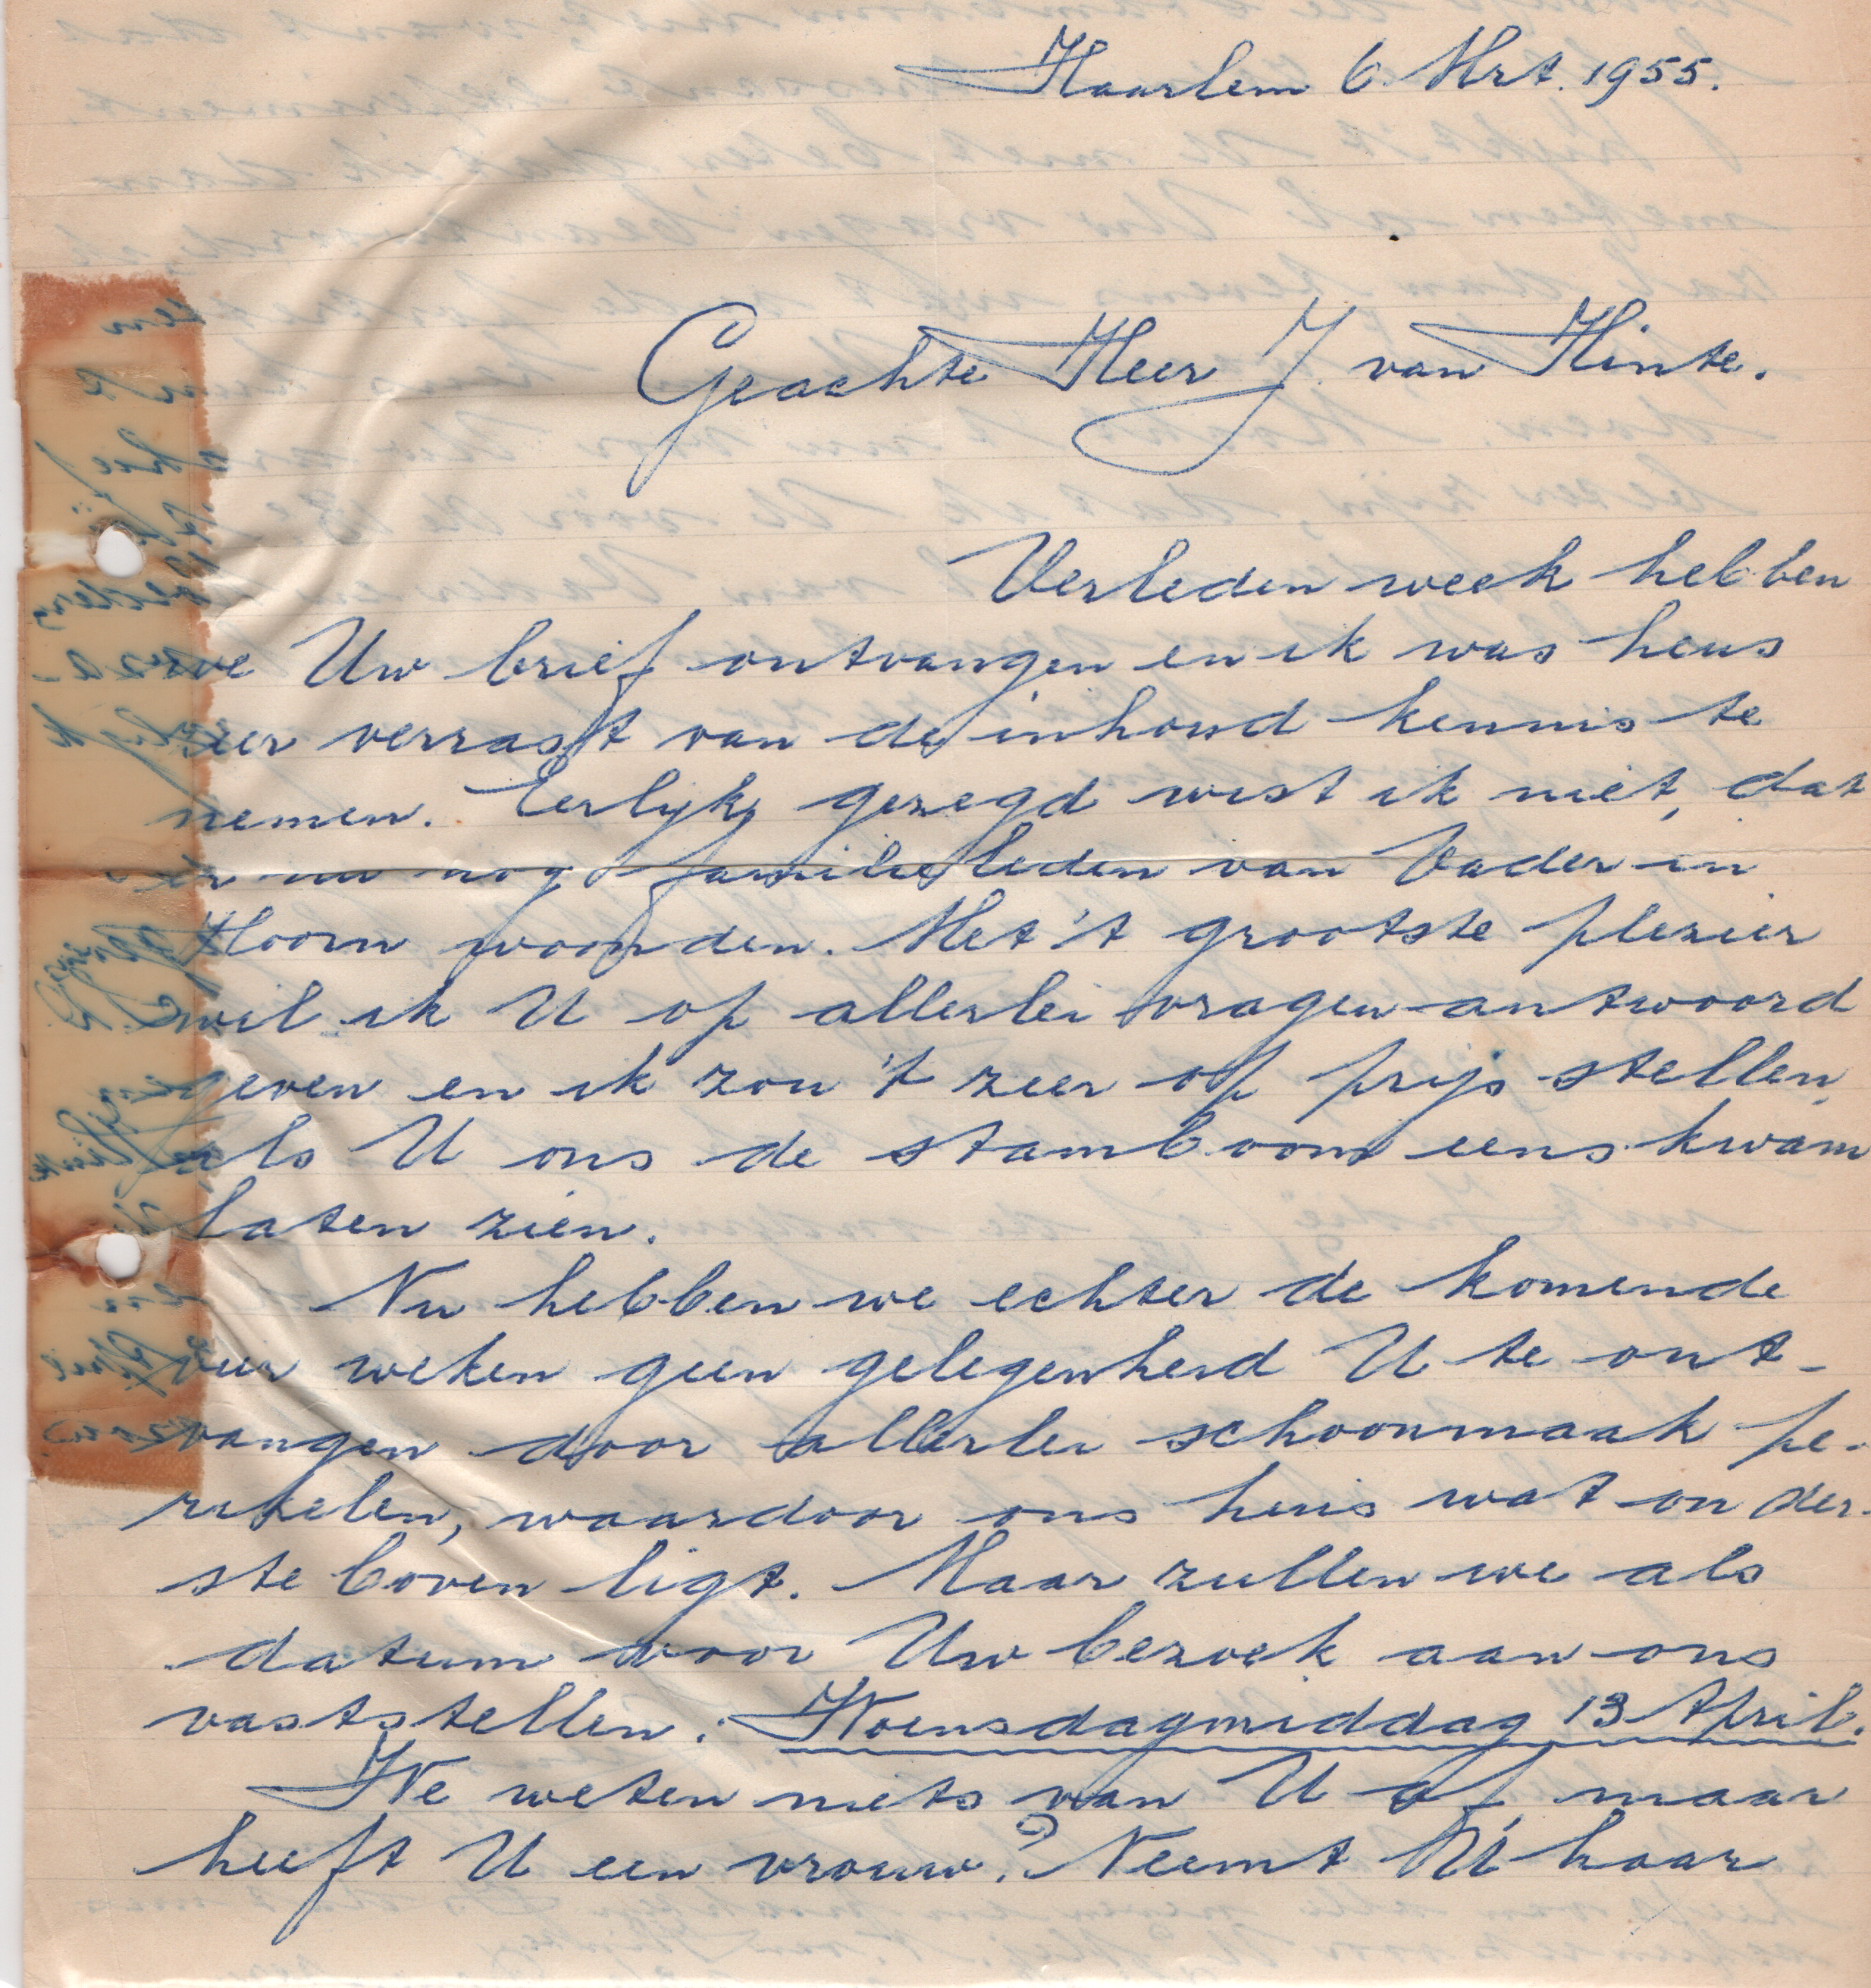 Haarlem 6 Mrt. 1955.
Geachte Heer J. van Hinte.
Verleden week hebben
we Uw brief ontvangen en ik was heus
zeer verrast van de inhoud kennis te
nemen. Eerlijk gezegd wist ik niet, dat
er nu nog familieleden van Vader in
Hoorn woonden. Met 't grootste plezier
wil ik U op allerlei vragen antwoord
geven en ik zou 't zeer op prijs stellen,
als U ons de stamboom eens kwam
laten zien.
Nu hebben we echter de komende
vier weken geen gelegenheid U te ont-
vangen door allerlei schoonmaak pe-
rikelen, waardoor ons huis wat onder-
ste boven ligt. Maar zullen we als
datum voor Uw bezoek aan ons
vaststellen: Woensdagmiddag 13 April.
We weten niets van U af, maar
heeft U een vrouw? Neemt U haar